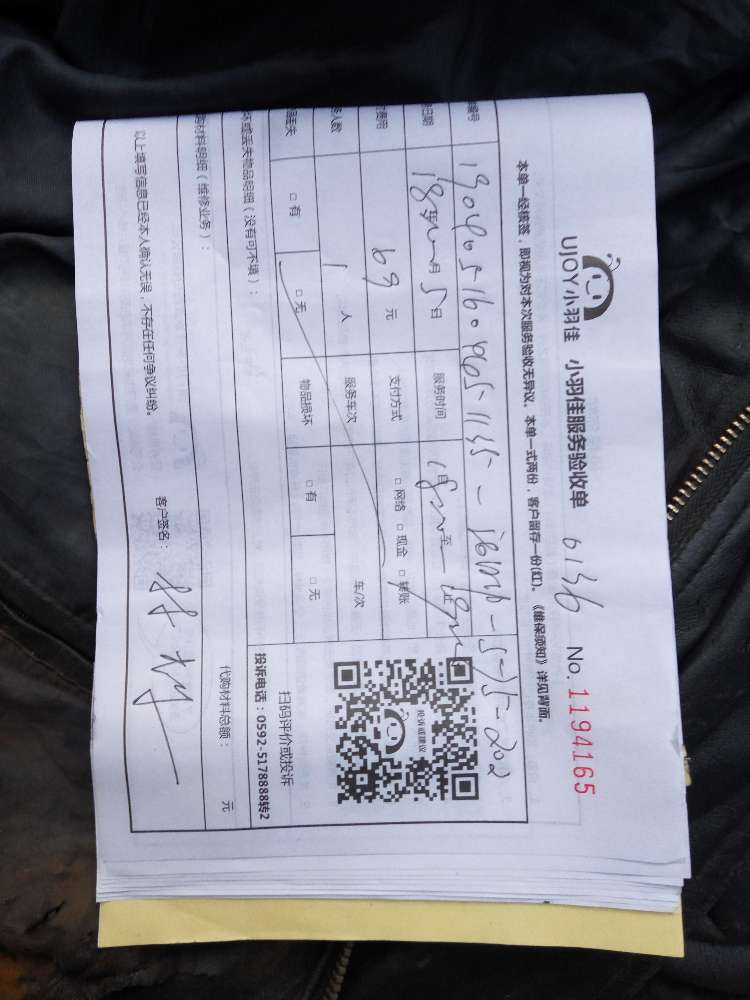 UJOY小羽佳 小羽佳服务验收单 6136 No. 1194165
本单一经核签，即视为对本次服务验收无异议。本单一式两份，客户留存一份(红)。《维保须知》详见背面。
编号
日期 月 5日 服务时间 至 止
费用 69 元 支付方式 □ 网络 □ 现金 □ 转账
人数 1 人 服务车次 车/次
□ 有 □ 无 物品损坏 □ 有 □ 无
投诉或建议
扫码评价或投诉
投诉电话：0592-5178888转2
坏或丢失物品明细（没有可不填）：
材料明细（维修业务）： 代购材料总额： 元
以上填写信息已经本人确认无误，不存在任何争议纠纷。 客户签名：